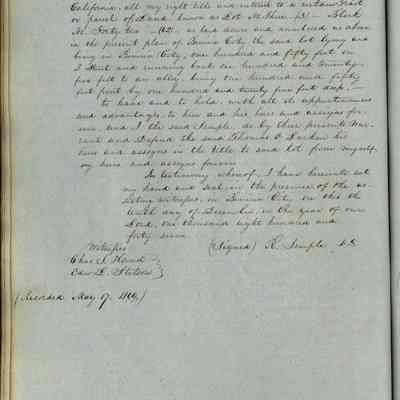 California, all my right title and interest to a certain tract
or parcel of Land, known as Lot N. three -(3)- Block
N. Forty two -(42)- as laid down and numbered as above
in the present plan of Benicia City, the said lot lying and
being in Benicia City, one hundred and fifty feet on
I Street and running back one hundred and twenty-
five feet to an alley, being one hundred and fifty
feet front by one hundred and twenty five feet deep,
to have and to hold, with all its appurtenances
and advantages, to him and his heirs and assigns for-
ever, and I the said Semple, do by these presents War-
rant and Defend the said Thomas O. Larkin his
heirs and assigns in the title to said lot from myself,
my heirs and assigns forever.
In testimony whereof, I have hereunto set
my hand and Seal, in the presence of the at-
testing witnesses, in Benicia City, on this the
day of December, in the year of our
Lord, one thousand eight hundred and
forty seven
Witnesses (Signed) R. Semple, L.S.
Chas. S.
Edw. D.
(Recorded May 17,